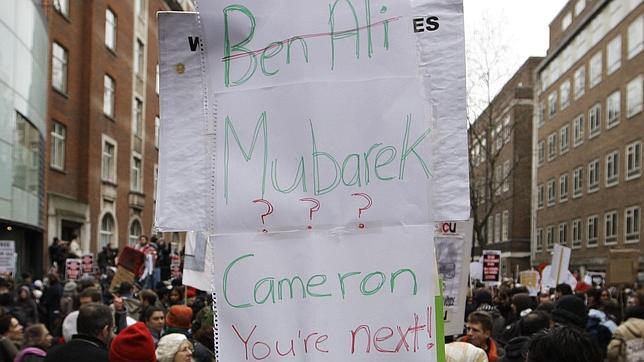 W
ES
Ben Ali
Mubarek
? ? ?
CU
Cameron
You're next!